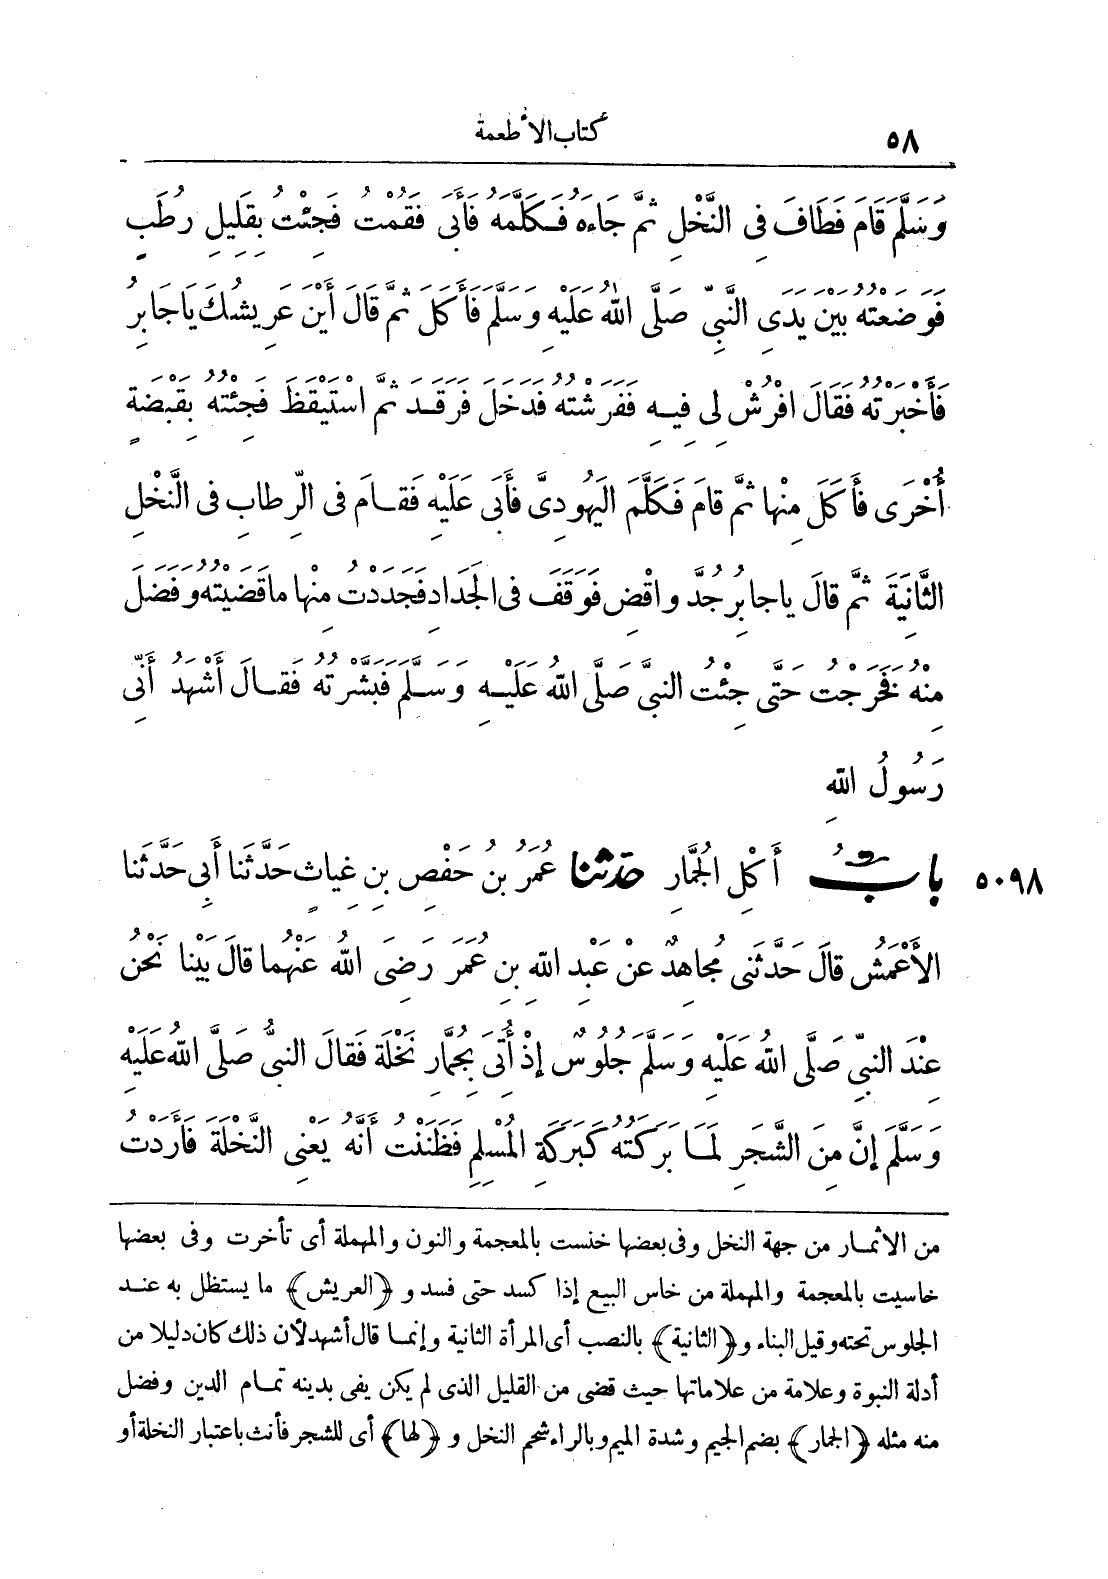 ٥٨ كتاب الأطعمة
وَسَلَّمَ قَامَ فَطَافَ فِى النَّخْلِ ثُمَّ جَاءَهُ فَكَلَّمَهُ فَأَبَى فَقُمْتُ فَجِئْتُ بِقَلِيلِ رُطَبٍ
فَوَضَعْتُهُ بَيْنَ يَدَىِ النَّبِىِّ صَلَّى اللهُ عَلَيْهِ وَسَلَّمَ فَأَكَلَ ثُمَّ قَالَ أَيْنَ عَرِيشُكَ يَا جَابِرُ
فَأَخْبَرْتُهُ فَقَالَ افْرُشْ لِى فِيهِ فَفَرَشْتُهُ فَدَخَلَ فَرَقَدَ ثُمَّ اسْتَيْقَظَ فَجِئْتُهُ بِقَبْضَةٍ
أُخْرَى فَأَكَلَ مِنْها ثُمَّ قامَ فَكَلَّمَ اليَهُودِىَّ فَأَبَى عَلَيْهِ فَقامَ فى الرِّطابِ فى النَّخْلِ
الثَّانِيَةَ ثُمَّ قالَ ياجابِرُ جُدَّ واقْضِ فَوَقَفَ فى الجَدَادِ فَجَدَدْتُ مِنْها ماقَضَيْتُهُ وفَضَلَ
مِنْهُ فَخَرَجْتُ حَتَّى جِئْتُ النبىَّ صَلَّى اللهُ عَلَيْهِ وَسَلَّمَ فَبَشَّرْتُهُ فَقالَ أَشْهَدُ أَنِّى
رَسُولُ اللهِ
٥٠٩٨ بابُ أَكْلِ الجُمَّارِ حدثنا عُمَرُ بنُ حَفْصِ بنِ غِياثٍ حَدَّثَنا أَبِى حَدَّثَنا
الأَعْمَشُ قالَ حَدَّثَنِى مُجاهِدٌ عَنْ عَبْدِ اللهِ بنِ عُمَرَ رَضِىَ اللهُ عَنْهُما قالَ بَيْنا نَحْنُ
عِنْدَ النبىِّ صَلَّى اللهُ عَلَيْهِ وَسَلَّمَ جُلُوسٌ إذْ أُتِىَ بِجُمَّارِ نَخْلَةٍ فَقالَ النبىُّ صَلَّى اللهُ عَلَيْهِ
وَسَلَّمَ إنَّ مِنَ الشَّجَرِ لَمَا بَرَكَتُهُ كَبَرَكَةِ المُسْلِمِ فَظَنَنْتُ أَنَّهُ يَعْنِى النَّخْلَةَ فَأَرَدْتُ
من الاثمار من جهة النخل وفى بعضها خنست بالمعجمة والنون والمهملة أى تأخرت وفى بعضها
خاسيت بالمعجمة والمهملة من خاس البيع إذا كسد حتى فسد و ﴿العريش﴾ ما يستظل به عند
الجلوس تحته وقيل البناء و﴿الثانية﴾ بالنصب أى المرأة الثانية وإنما قال أشهد لأن ذلك كان دليلا من
أدلة النبوة وعلامة من علاماتها حيث قضى من القليل الذى لم يكن يفى بدينه تمام الدين وفضل
منه مثله ﴿الجمار﴾ بضم الجيم وشدة الميم وبالراء شحم النخل و ﴿لها﴾ أى للشجر فأنث باعتبار النخلة أو